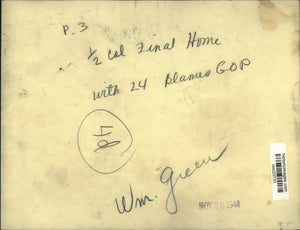 P. 3
1/2 Col Final Home
with 24 Blames GOP
48
Wm. Green
NOV 20 1944